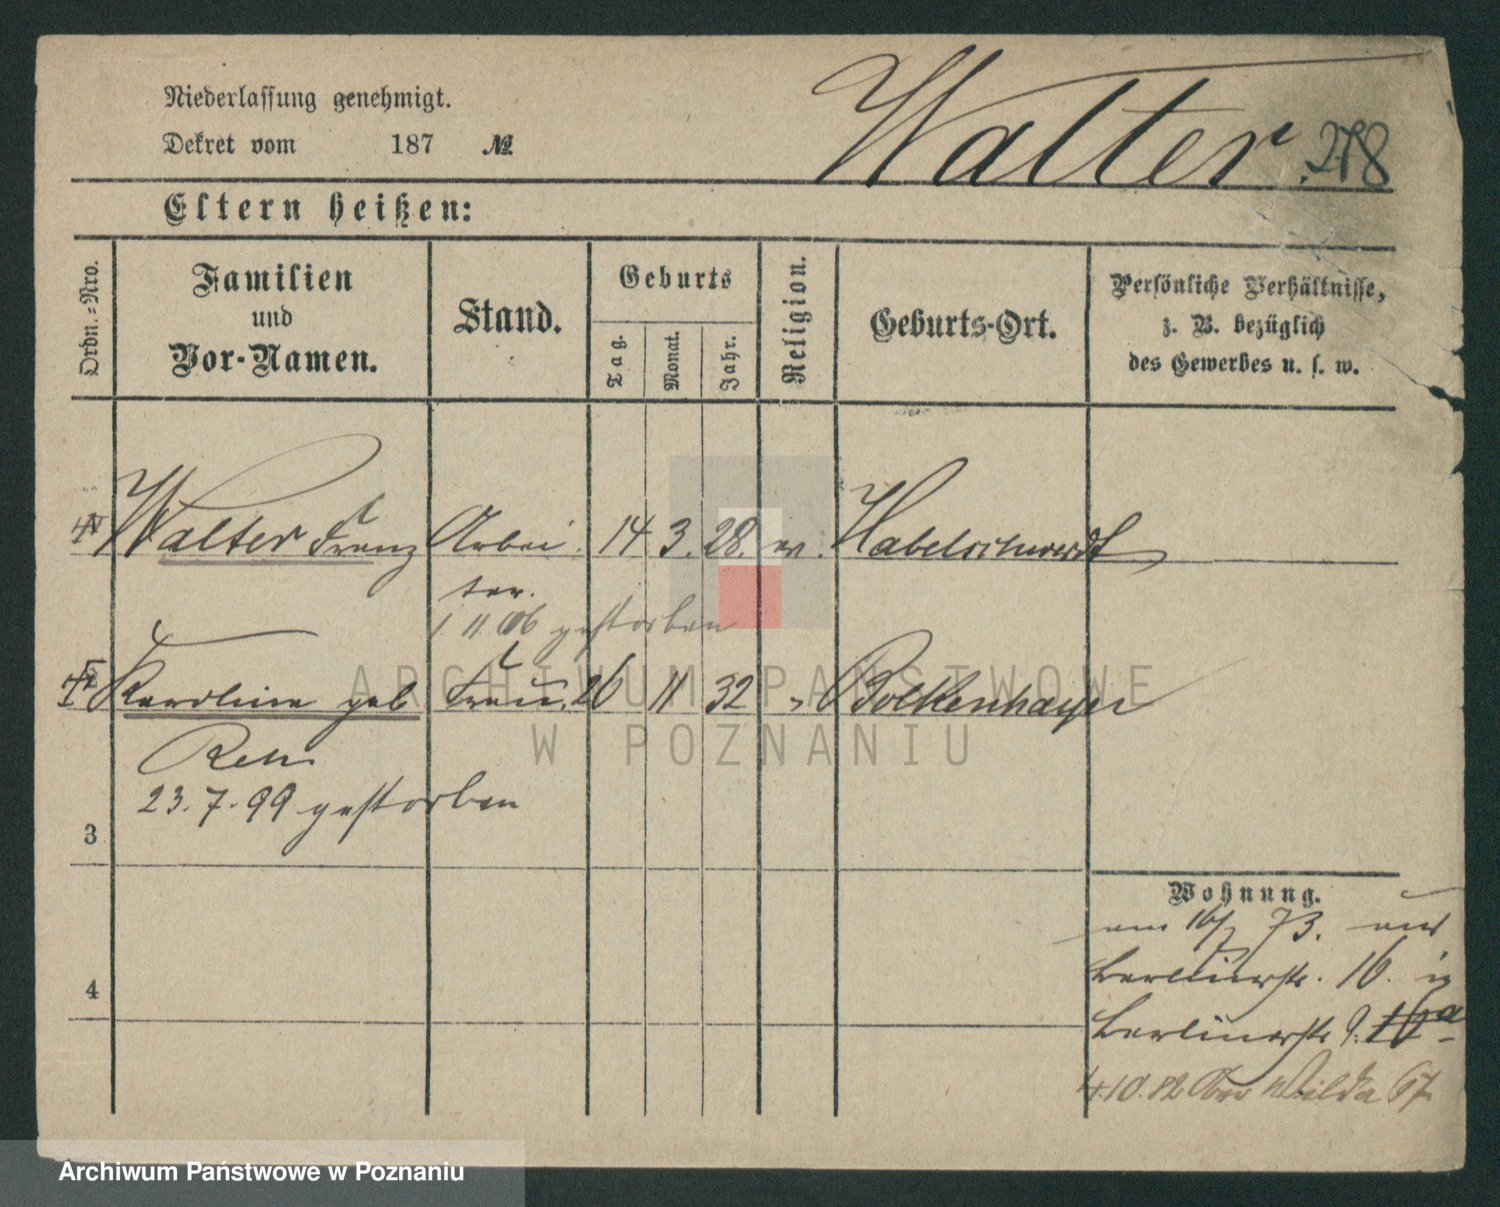 Niederlassung genehmigt.
Dekret vom 187 №
Walter. 278
Eltern heißen:
Ordn.=Nro.
Familien
und
Vor-Namen.
Stand.
Geburts
Tag.
Monat.
Jahr.
Religion.
Geburts-Ort.
Persönliche Verhältnisse,
z. B. bezüglich
des Gewerbes u. s. w.
Walter Franz Arbei 14 3. 28. Habelschwerdt
ter.
1 11 06 gestorben
Karoline geb Frau. 26 11 32 Bolkenhayn
23.7.99 gestorben
3
4
Wohnung.
am 16/7 73. aus
Berlinerstr. 16. in
Berlinerstr 9. 16a
4.10.82 Ober Wilda 67
ARCHIWUM PAŃSTWOWE
W POZNANIU
Archiwum Państwowe w Poznaniu